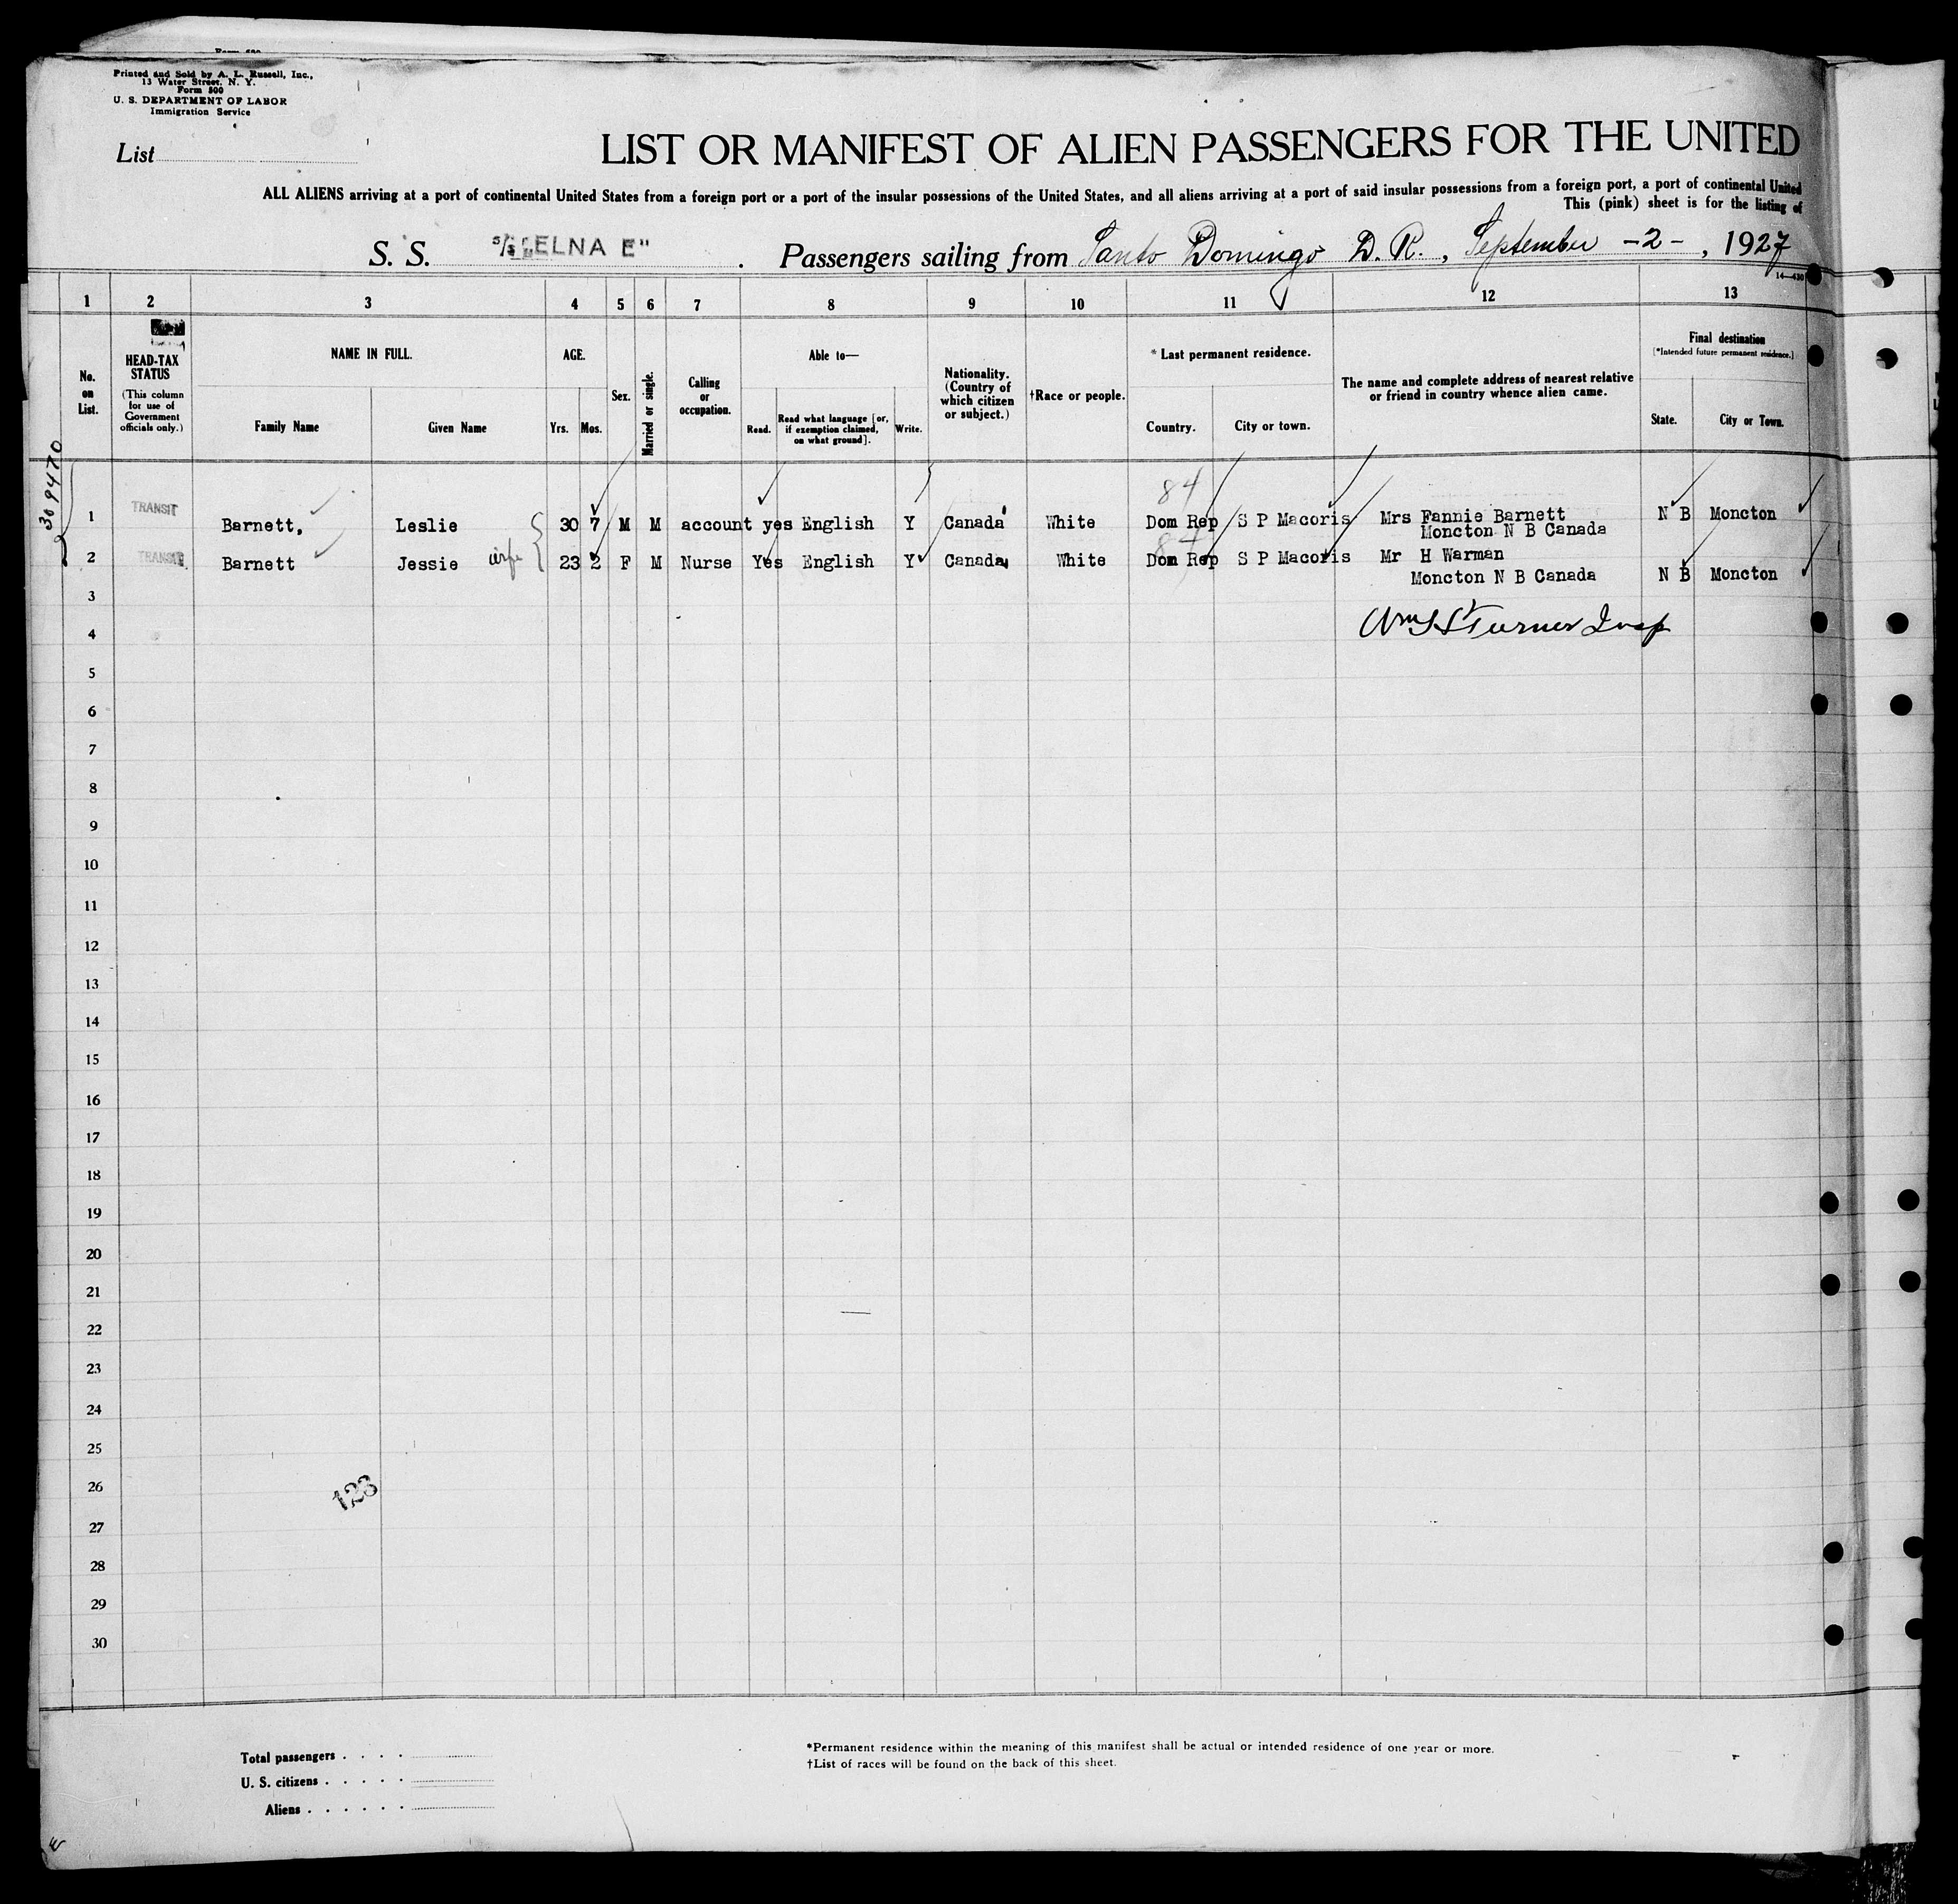 Printed and Sold by A. L. Russell, Inc.,
13 Water Street, N. Y.
Form 500
U. S. DEPARTMENT OF LABOR
Immigration Service
List
LIST OR MANIFEST OF ALIEN PASSENGERS FOR THE UNITED
ALL ALIENS arriving at a port of continental United States from a foreign port or a port of the insular possessions of the United States, and all aliens arriving at a port of said insular possessions from a foreign port, a port of continental United
This (pink) sheet is for the listing of
S. S. S/S "ELNA E" . Passengers sailing from Santo Domingo D. R. , September -2- , 1927
14-430
1 2 3 4 5 6 7 8 9 10 11 12 13
No. on List.
HEAD-TAX STATUS
(This column for use of Government officials only.)
NAME IN FULL.
Family Name
Given Name
AGE.
Yrs. Mos.
Sex.
Married or single.
Calling or occupation.
Able to—
Read.
Read what language [or, if exemption claimed, on what ground].
Write.
Nationality. (Country of which citizen or subject.)
†Race or people.
* Last permanent residence.
Country.
City or town.
The name and complete address of nearest relative or friend in country whence alien came.
Final destination
[*Intended future permanent residence.]
State.
City or Town.
309470
84
1 TRANSIT Barnett, Leslie 30 7 M M account yes English Y Canada White Dom Rep S P Macoris Mrs Fannie Barnett N B Moncton
Moncton N B Canada
84
2 TRANSIT Barnett Jessie wife 23 2 F M Nurse Yes English Y Canada White Dom Rep S P Macoris Mr H Warman
Moncton N B Canada N B Moncton
3
4 Turner Insp
5
6
7
8
9
10
11
12
13
14
15
16
17
18
19
20
21
22
23
24
25
26
123
27
28
29
30
Total passengers . . . .
U. S. citizens . . . . .
Aliens . . . . . .
*Permanent residence within the meaning of this manifest shall be actual or intended residence of one year or more.
†List of races will be found on the back of this sheet.